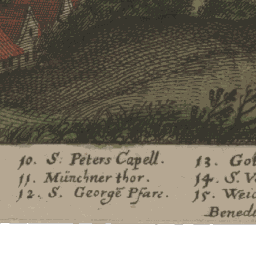 10. S. Peters Capell.
11. Münchner thor.
12. S. Georgē Pfarr.
13.
14. S.
15.